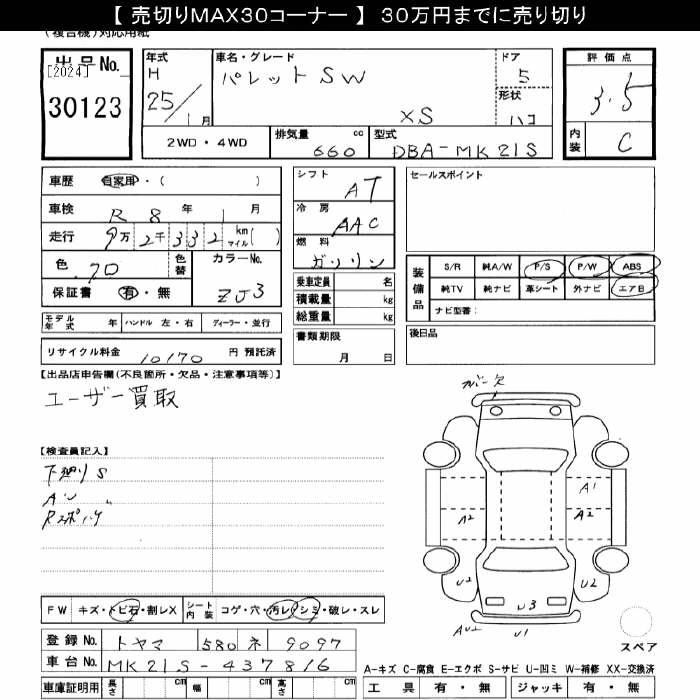 【 売切りMAX30コーナー 】 30万円までに売り切り
(複合機)対応用紙
出品No.
[2024]
30123
年式
H
25/1月
車名・グレード
パレットSW
XS
ドア
5
形状
ハコ
評価点
3.5
内装
C
2WD・4WD
排気量 660 cc
型式 DBA-MK21S
車歴 自家用・( )
車検 R 8 年 1 月
走行 9万2千332 km マイル( )
色 70
色替
カラーNo.
ZJ3
保証書 有・無
モデル年式 年 ハンドル 左・右 ディーラー・並行
リサイクル料金 10170 円 預託済
シフト
AT
冷房
AAC
燃料
ガソリン
乗車定員 名
積載量 kg
総重量 kg
書類期限
月 日
セールスポイント
装備品
S/R 純A/W P/S P/W ABS
純TV 純ナビ 革シート 外ナビ エアB
ナビ型番:
後日品
【出品店申告欄(不良箇所・欠品・注意事項等)】
ユーザー買取
【検査員記入】
下廻りS
カバー欠
A1
A2
A2
U2
U2
U3
U1
スペア
FW キズ・トビ石・割レX
シート内装 コゲ・穴・汚レ・シミ・破レ・スレ
登録No. トヤマ 580 ネ 9097
車台No. MK21S-437816
車庫証明用 長さ cm 幅 cm 高さ cm
A-キズ C-腐食 E-エクボ S-サビ U-凹ミ W-補修 XX-交換済
工具 有・無 ジャッキ 有・無